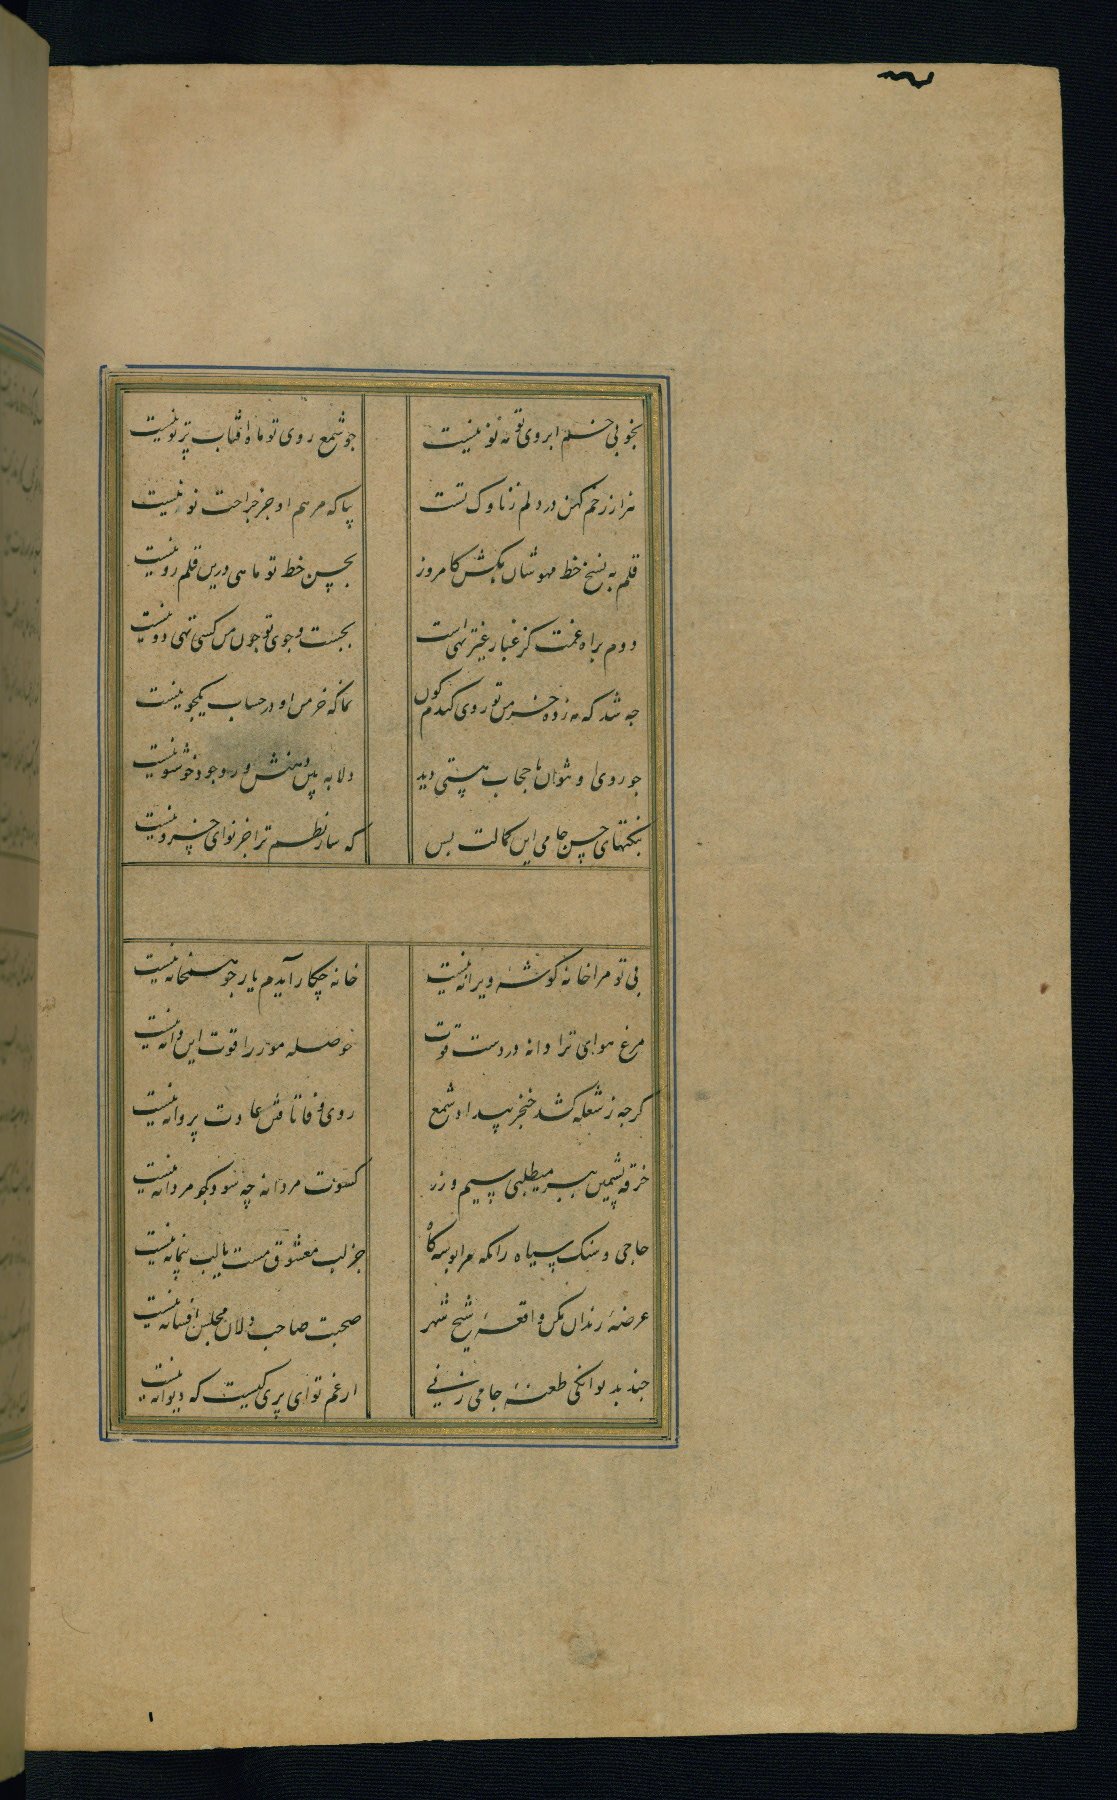 بخوبی خم ابروی تو مه نو نیست چو شمع روی تو ماه آفتاب پرتو نیست
مرا ز زخم کهن در دلم ز ناوک تست بیا که مرهم او جز جراحت نو نیست
قلم به نسخ خط مهوشان بکش کامروز بحسن خط تو ماهی درین قلمرو نیست
دوم براه غمت کز غبار غیر تهی است بجست و جوی تو چون من کسی تهی دو نیست
چه شد که مه زده خرمن تو روی گندم کون نما که خرمن او در حساب یکجو نیست
چو روی او نتوان با حجاب هستی دید دلا به پیش وجود خوشو نیست
بنکتهای حسن جامی این کمالت بس که ساز نظم ترا جز نوای خسرو نیست
بی تو مرا خانه کوشهٔ ویرانه نیست خانه چکار آیدم یار چو همخانه نیست
مرغ هوای ترا دانه در دست قوت حوصله مور را قوت این دانه نیست
کرچه ز شعله کشد خنجر بیداد شمع روی وفا تافتن عادت پروانه نیست
خرقه پشمین ببر میطلبی سیم و زر کسوت مردانه چه سود چو مردانه نیست
حاجی و سنک سیاه زانکه مرا بوسه کاه جز لب معشوق مست یا لب پیمانه نیست
عرضهٔ رندان مکن واقعهٔ شیخ شهر صحبت صاحب دلان مجلس افسانه نیست
چند بدیوانکی طعنهٔ جامی زنی از غم تو ای پری کیست که دیوانه نیست